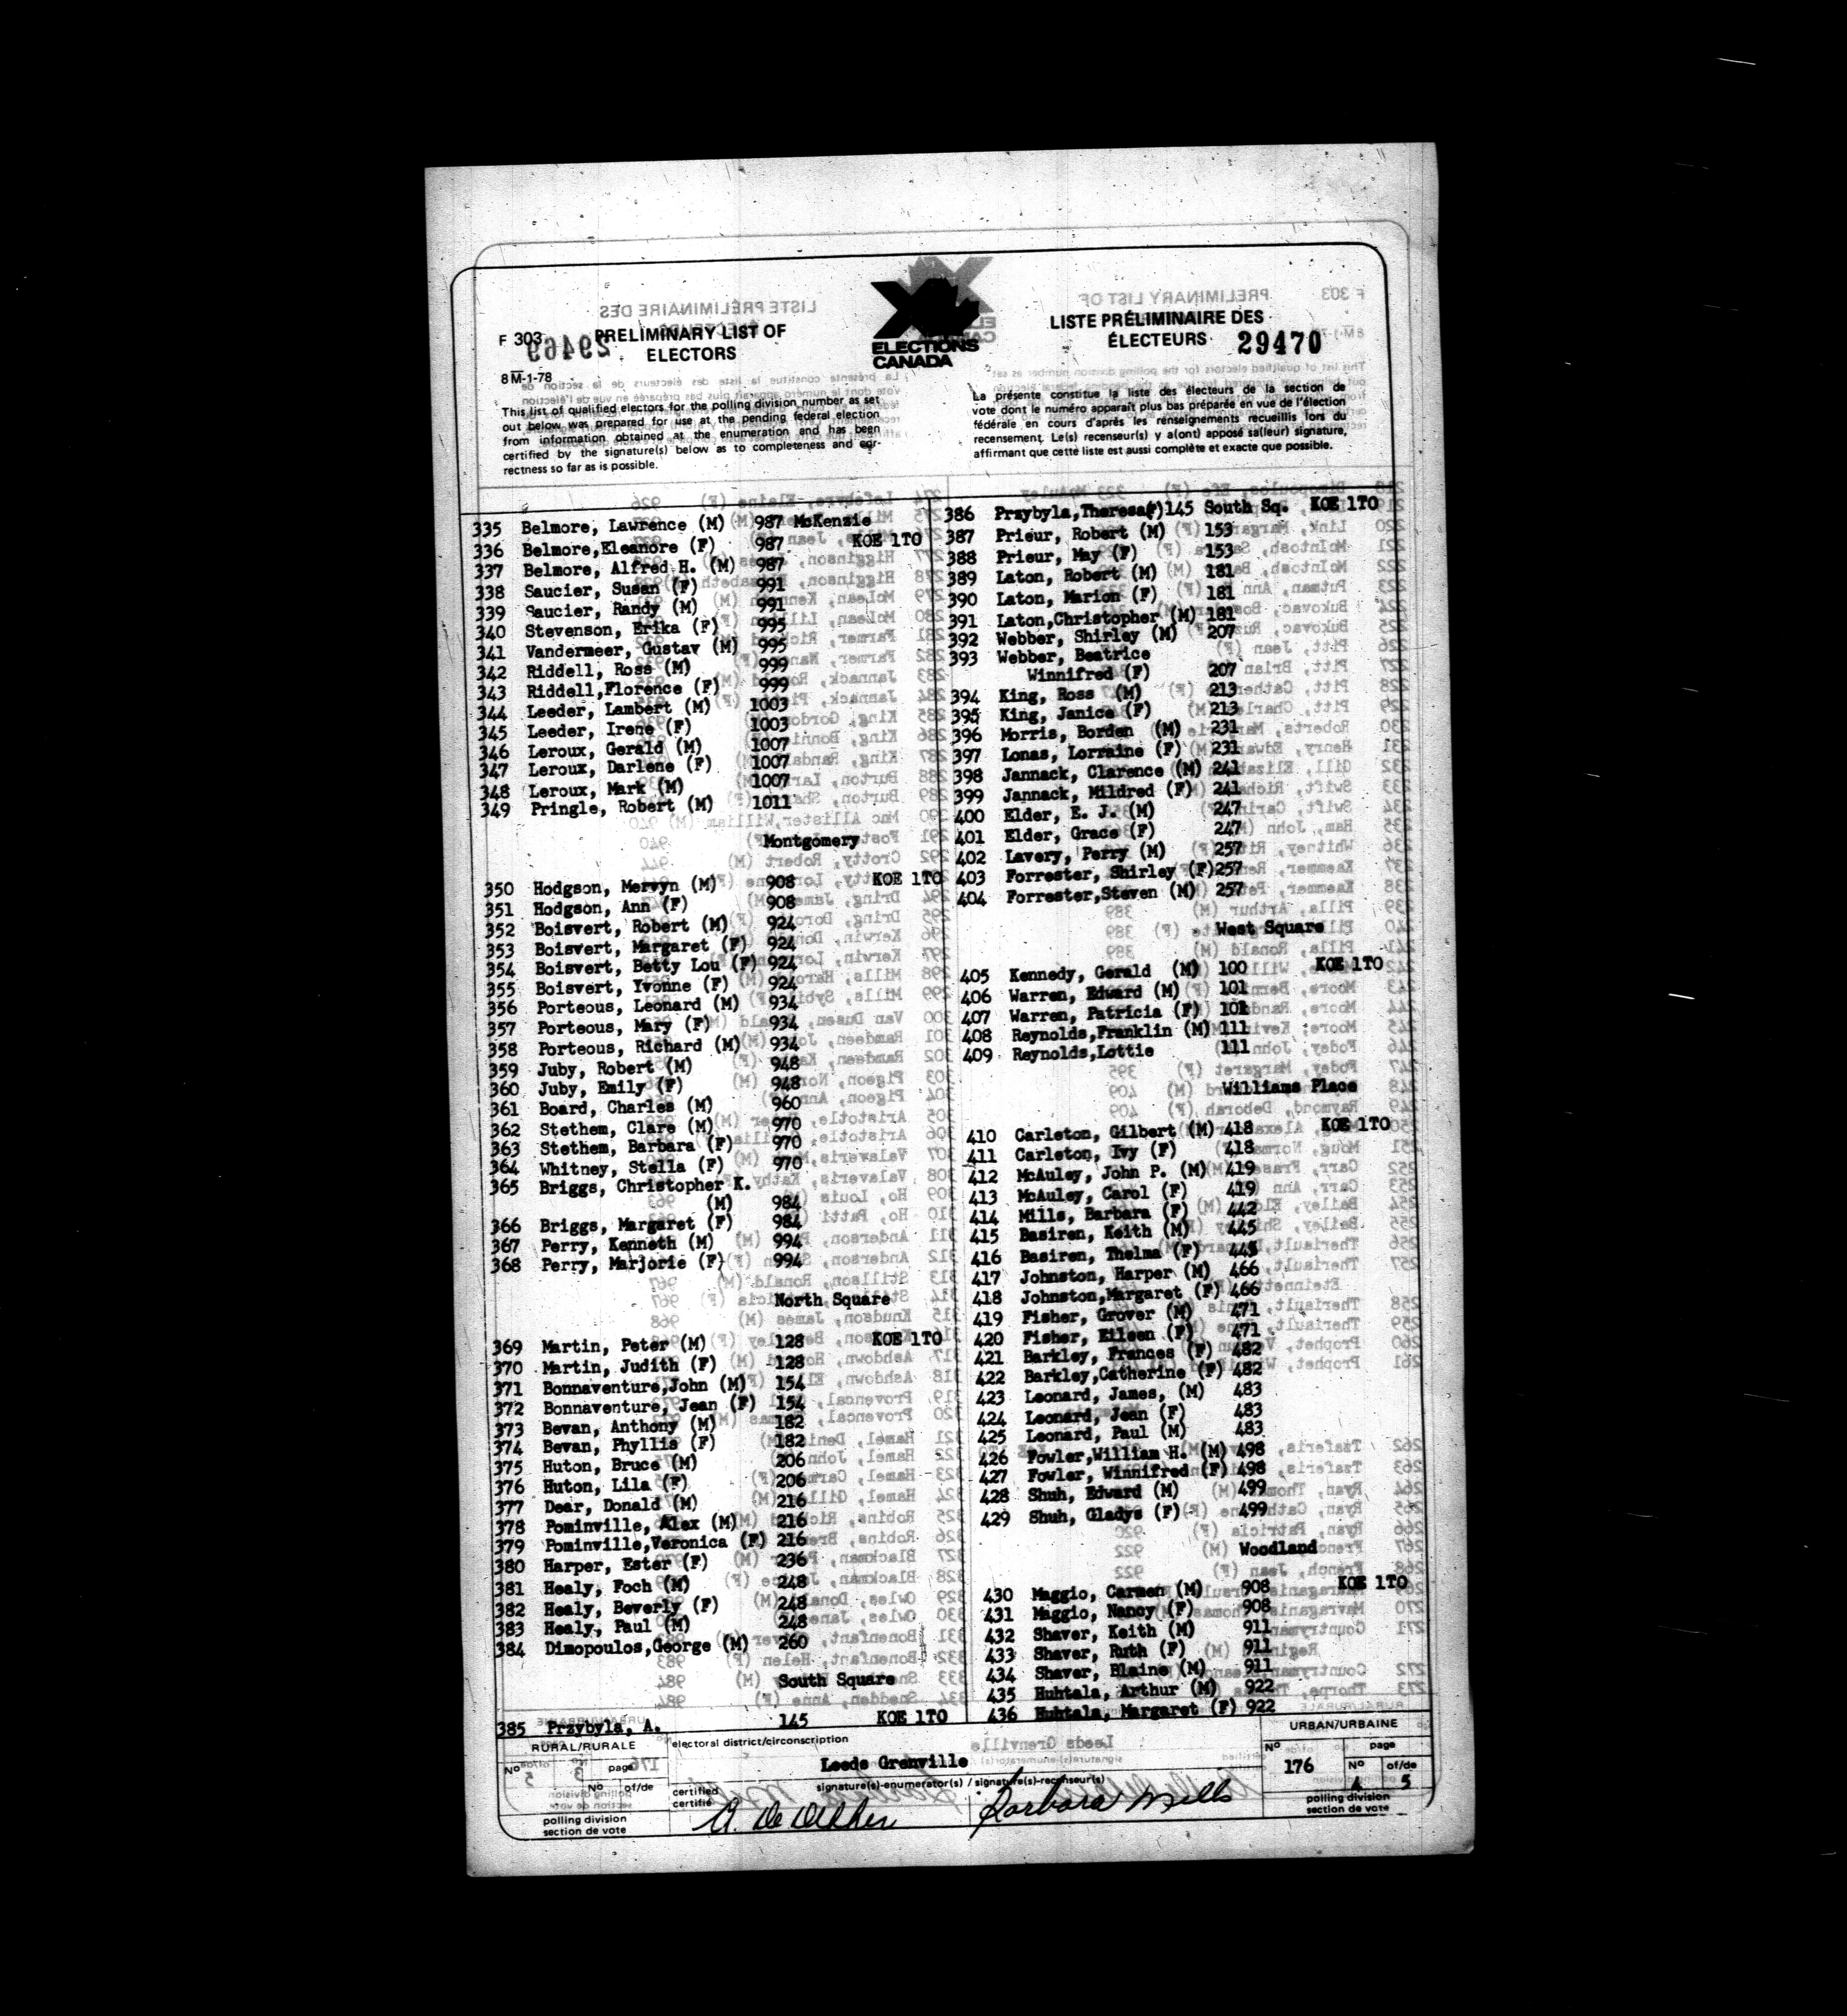 F 303
PRELIMINARY LIST OF
ELECTORS
8M-1-78
ELECTIONS
CANADA
LISTE PRÉLIMINAIRE DES
ÉLECTEURS
29470
This list of qualified electors for the polling division number as set
out below was prepared for use at the pending federal election
from information obtained at the enumeration and has been
certified by the signature(s) below as to completeness and cor-
rectness so far as is possible.
La présente constitue la liste des électeurs de la section de
vote dont le numéro apparaît plus bas préparée en vue de l'élection
fédérale en cours d'après les renseignements recueillis lors du
recensement. Le(s) recenseur(s) y a(ont) apposé sa(leur) signature,
affirmant que cette liste est aussi complète et exacte que possible.
335 Belmore, Lawrence (M) 987 McKenzie
336 Belmore,Eleanore (F) 987 KOE 1TO
337 Belmore, Alfred H. (M) 987
338 Saucier, Susan (F) 991
339 Saucier, Randy (M) 991
340 Stevenson, Erika (F) 995
341 Vandermeer, Gustav (M) 995
342 Riddell, Ross (M) 999
343 Riddell,Florence (F) 999
344 Leeder, Lambert (M) 1003
345 Leeder, Irene (F) 1003
346 Leroux, Gerald (M) 1007
347 Leroux, Darlene (F) 1007
348 Leroux, Mark (M) 1007
349 Pringle, Robert (M) 1011
Montgomery
350 Hodgson, Mervyn (M) 908 KOE 1TO
351 Hodgson, Ann (F) 908
352 Boisvert, Robert (M) 924
353 Boisvert, Margaret (F) 924
354 Boisvert, Betty Lou (F) 924
355 Boisvert, Yvonne (F) 924
356 Porteous, Leonard (M) 934
357 Porteous, Mary (F) 934
358 Porteous, Richard (M) 934
359 Juby, Robert (M) 948
360 Juby, Emily (F) 948
361 Board, Charles (M) 960
362 Stethem, Clare (M) 970
363 Stethem, Barbara (F) 970
364 Whitney, Stella (F) 970
365 Briggs, Christopher K.
(M) 984
366 Briggs, Margaret (F) 984
367 Perry, Kenneth (M) 994
368 Perry, Marjorie (F) 994
North Square
369 Martin, Peter (M) 128 KOE 1TO
370 Martin, Judith (F) 128
371 Bonnaventure,John (M) 154
372 Bonnaventure, Jean (F) 154
373 Bevan, Anthony (M) 182
374 Bevan, Phyllis (F) 182
375 Huton, Bruce (M) 206
376 Huton, Lila (F) 206
377 Dear, Donald (M) 216
378 Pominville, Alex (M) 216
379 Pominville,Veronica (F) 216
380 Harper, Ester (F) 236
381 Healy, Foch (M) 248
382 Healy, Beverly (F) 248
383 Healy, Paul (M) 248
384 Dimopoulos,George (M) 260
South Square
385 Przybyla, A. 145 KOE 1TO
386 Przybyla,Theresa(F)145 South Sq. KOE 1TO
387 Prieur, Robert (M) 153
388 Prieur, May (F) 153
389 Laton, Robert (M) 181
390 Laton, Marion (F) 181
391 Laton,Christopher (M) 181
392 Webber, Shirley (M) 207
393 Webber, Beatrice
Winnifred (F) 207
394 King, Ross (M) 213
395 King, Janice (F) 213
396 Morris, Borden (M) 231
397 Lonas, Lorraine (F) 231
398 Jannack, Clarence (M) 241
399 Jannack, Mildred (F) 241
400 Elder, E. J. (M) 247
401 Elder, Grace (F) 247
402 Lavery, Perry (M) 257
403 Forrester, Shirley (F)257
404 Forrester,Steven (M) 257
West Square
405 Kennedy, Gerald (M) 100 KOE 1TO
406 Warren, Edward (M) 101
407 Warren, Patricia (F) 101
408 Reynolds,Franklin (M) 111
409 Reynolds,Lottie 111
Williams Place
410 Carleton, Gilbert (M) 418 KOE 1TO
411 Carleton, Ivy (F) 418
412 McAuley, John P. (M) 419
413 McAuley, Carol (F) 419
414 Mills, Barbara (F) 442
415 Basiren, Keith (M) 445
416 Basiren, Thelma (F) 445
417 Johnston, Harper (M) 466
418 Johnston,Margaret (F) 466
419 Fisher, Grover (M) 471
420 Fisher, Eileen (F) 471
421 Barkley, Frances (F) 482
422 Barkley,Catherine (F) 482
423 Leonard, James, (M) 483
424 Leonard, Jean (F) 483
425 Leonard, Paul (M) 483
426 Fowler,William H. (M) 498
427 Fowler, Winnifred (F) 498
428 Shuh, Edward (M) 499
429 Shuh, Gladys (F) 499
Woodland
430 Maggio, Carmen (M) 908 KOE 1TO
431 Maggio, Nancy (F) 908
432 Shaver, Keith (M) 911
433 Shaver, Ruth (F) 911
434 Shaver, Blaine (M) 911
435 Huhtala, Arthur (M) 922
436 Huhtala, Margaret (F) 922
RURAL/RURALE
No page
No of/de
polling division
section de vote
electoral district/circonscription
Leeds Grenville
certified
certifié
signature(s)-enumerator(s) / signature(s)-recenseur(s)
Barbara Mills
URBAN/URBAINE
No page
176 No of/de
4 5
polling division
section de vote